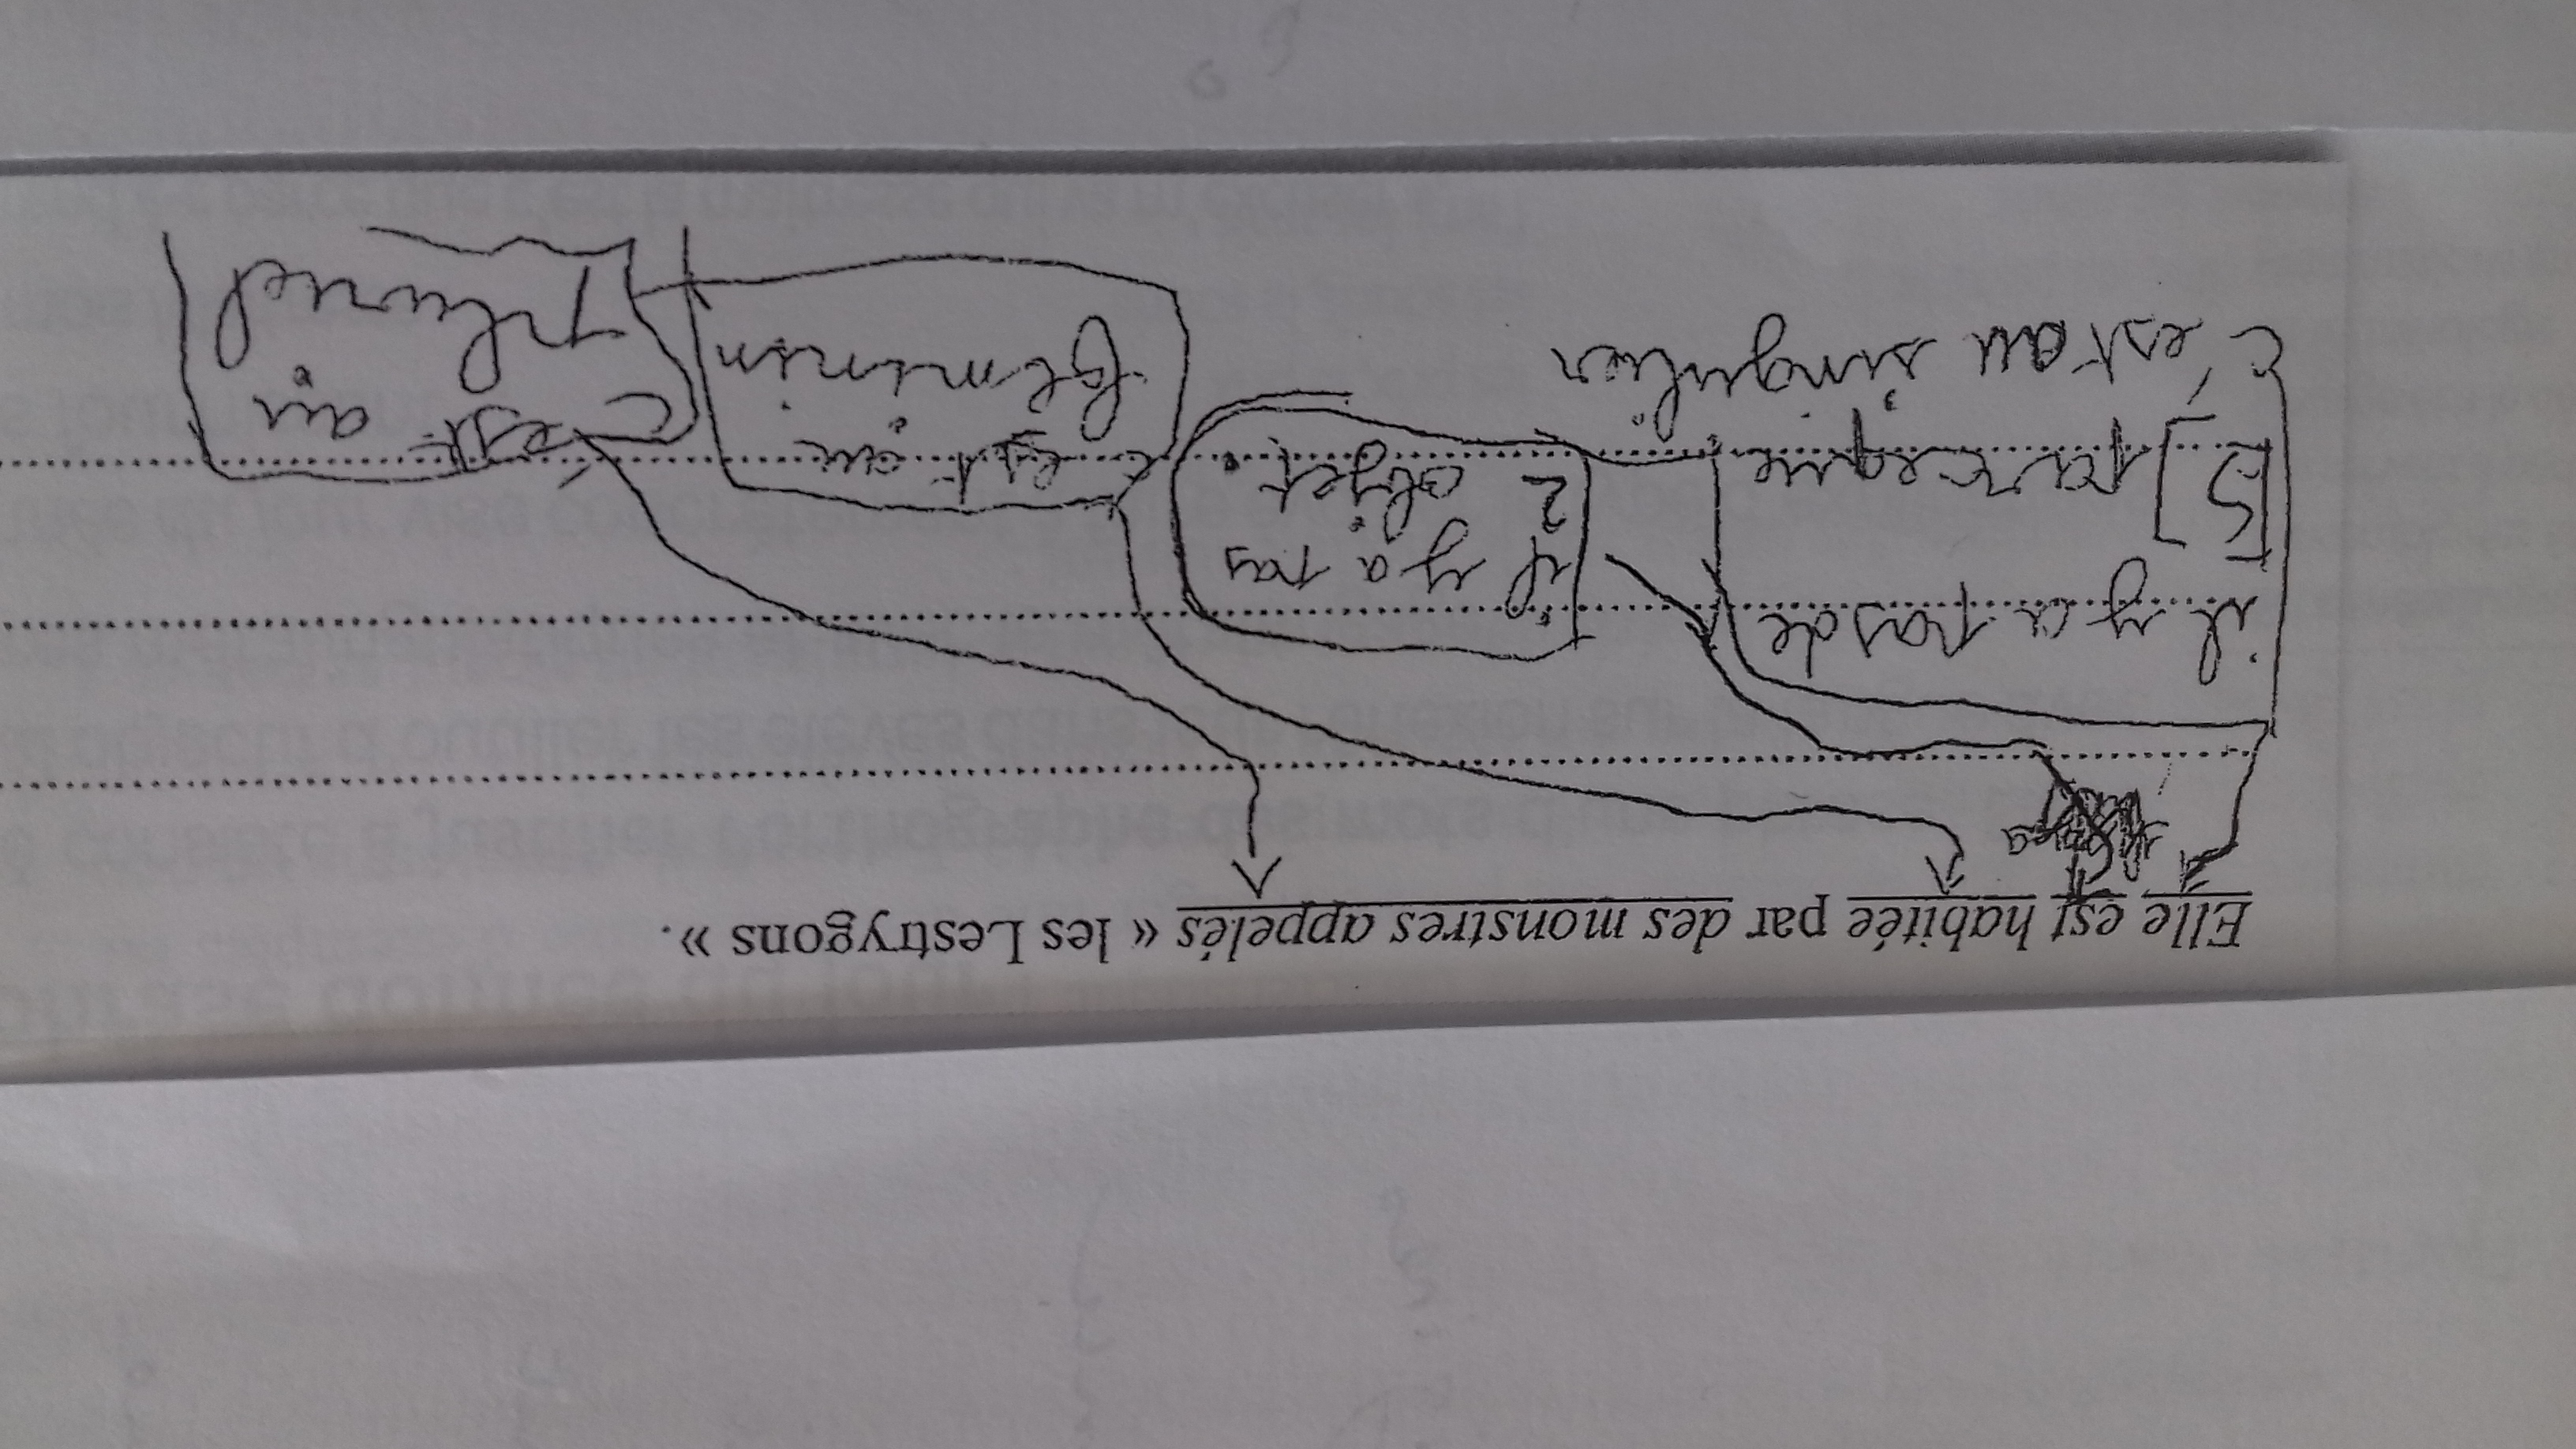 Elle est habitée par des monstres appelés « les Lestrygons ».
il y a pas de
[S] parceque
c'est au singulier
il y a pas
2 objet.
c'est au
féminin
C'est au
pluriel